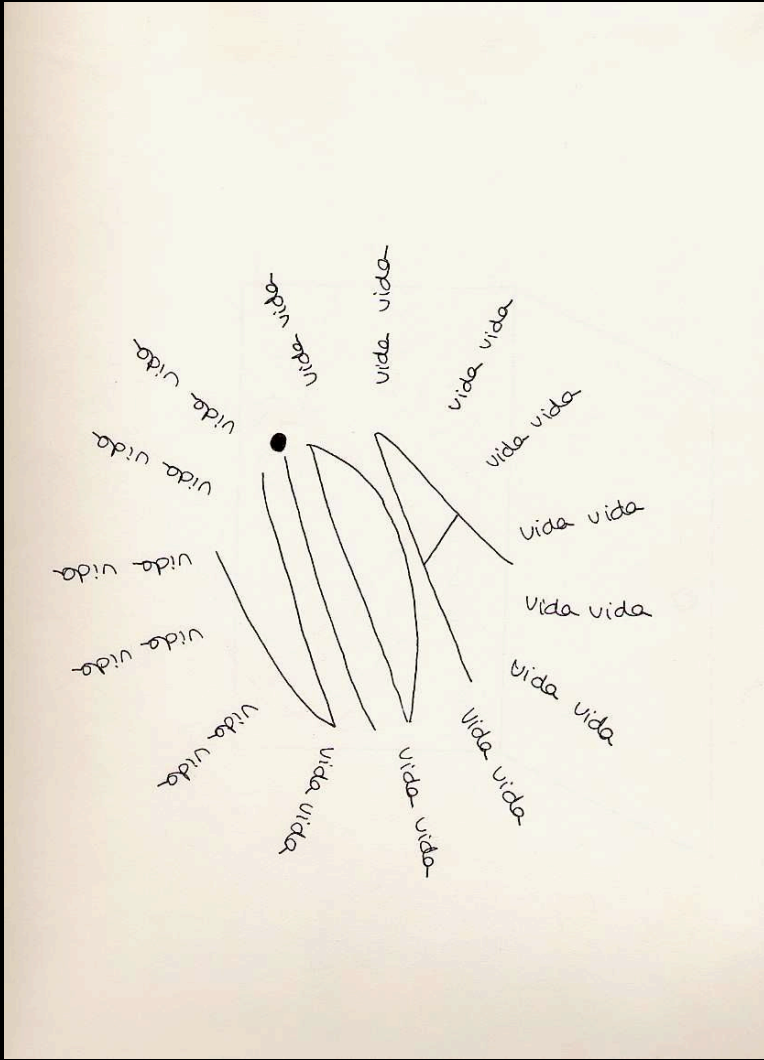 vida vida
vida vida
vida vida
vida vida
vida vida
vida vida
vida vida
vida vida
ViDA
vida vida
vida vida
vida vida
vida vida
vida vida
vida vida
vida vida